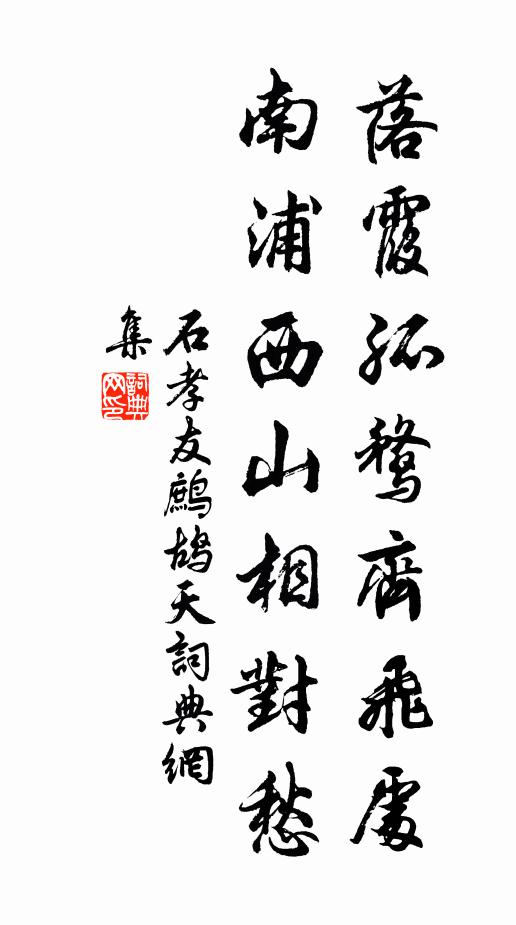 落霞孤鶩齊飛處
南浦西山相對愁
石孝友鷓鴣天詞典網
集
詞典網印